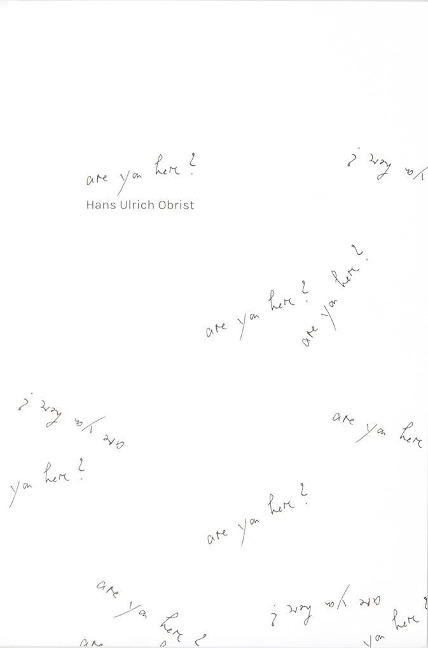 are you here?
Hans Ulrich Obrist
here? you
are you here?
are you here?
are you here?
are you here
you here?
are you here?
are you here?
are you here?
you here?
are